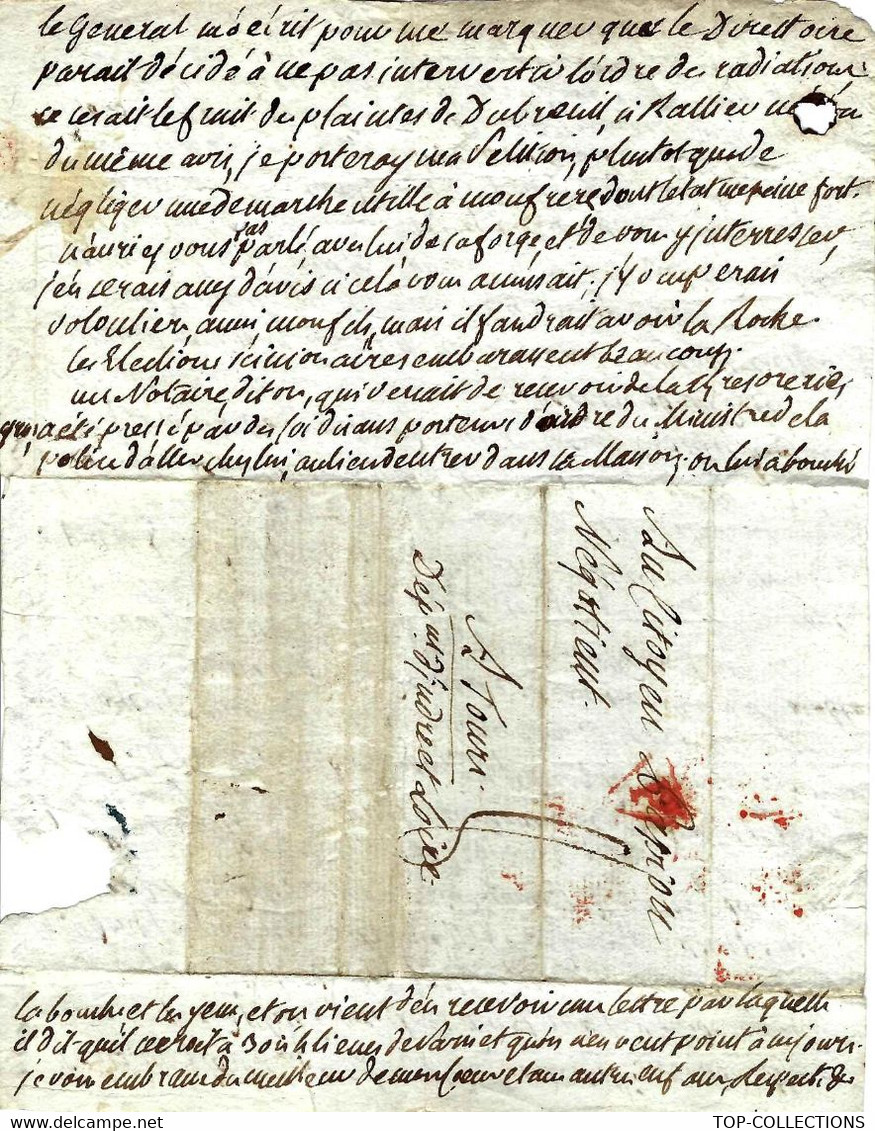 le General m'écrit pour me marquer que le Directoire
parait décidé à ne pas intervertir l'ordre des radiations
ce serait le fruit des plaintes de Dubreuil, si Rallier
du même avis, je porteray ma Petition, plutot que de
négliger une demarche utille à mon frere, dont l'etat me peine fort.
n'auriez vous pas parlé avec lui de la forge et de vous y interresser,
j'en serais assez d'avis si celà vous amusait, j'y
volontier aussi mon fils, mais il faudrait avoir la Roche
les Elections embarassent beaucoup.
un Notaire, dit on, qui venait de recevoir de la Tresorerie,
a été pressé par des soi disans porteurs d'ordre du Ministre de la
police d'aller chez lui, au lieu d'entrer dans la Maison, on lui a bouché
Au Citoyen
Négotient.
A Tours.
Dép. d'indre et Loire.
la bouche et les yeux, et on vient d'en recevoir une lettre par laquelle
il dit qu'il lieues de Paris et qu'on n'en veut point à ses jours.
je vous embrasse du meilleur de mon coeur
TOP-COLLECTIONS